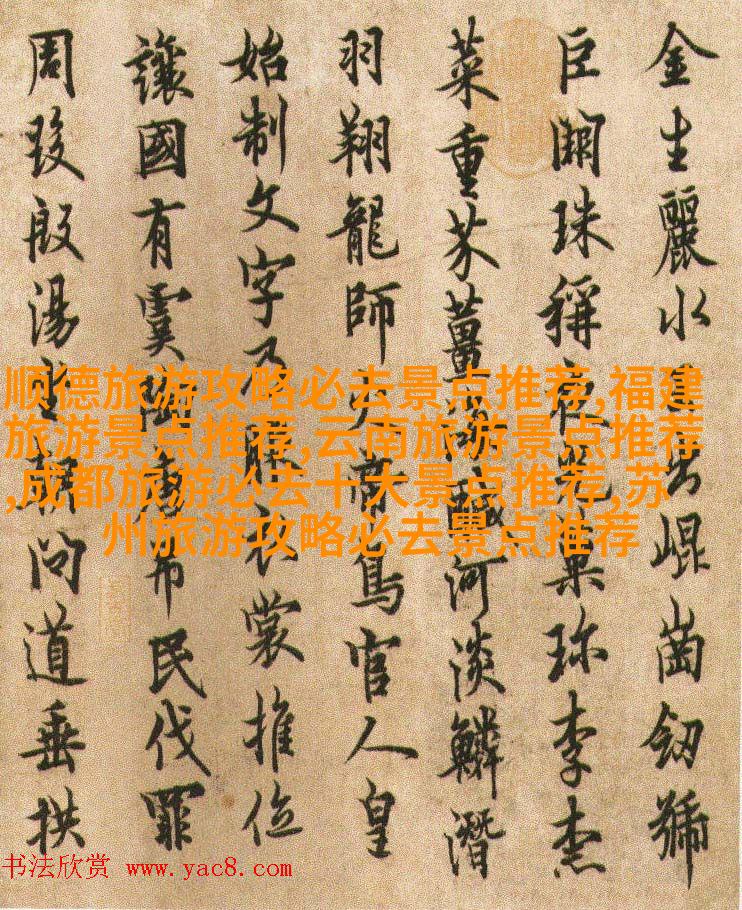 金生麗水玉出崐崗劒號
巨闕珠稱夜光菓珎李柰
菜重芥薑海鹹河淡鱗潛
羽翔龍師火帝鳥官人皇
始制文字乃服衣裳推位
讓國有虞陶唐弔民伐罪
周發殷湯坐朝問道垂拱
顺德旅游攻略必去景点推荐,福建
旅游景点推荐,云南旅游景点推荐
,成都旅游必去十大景点推荐,苏
州旅游攻略必去景点推荐
书法欣赏 www.yac8.com